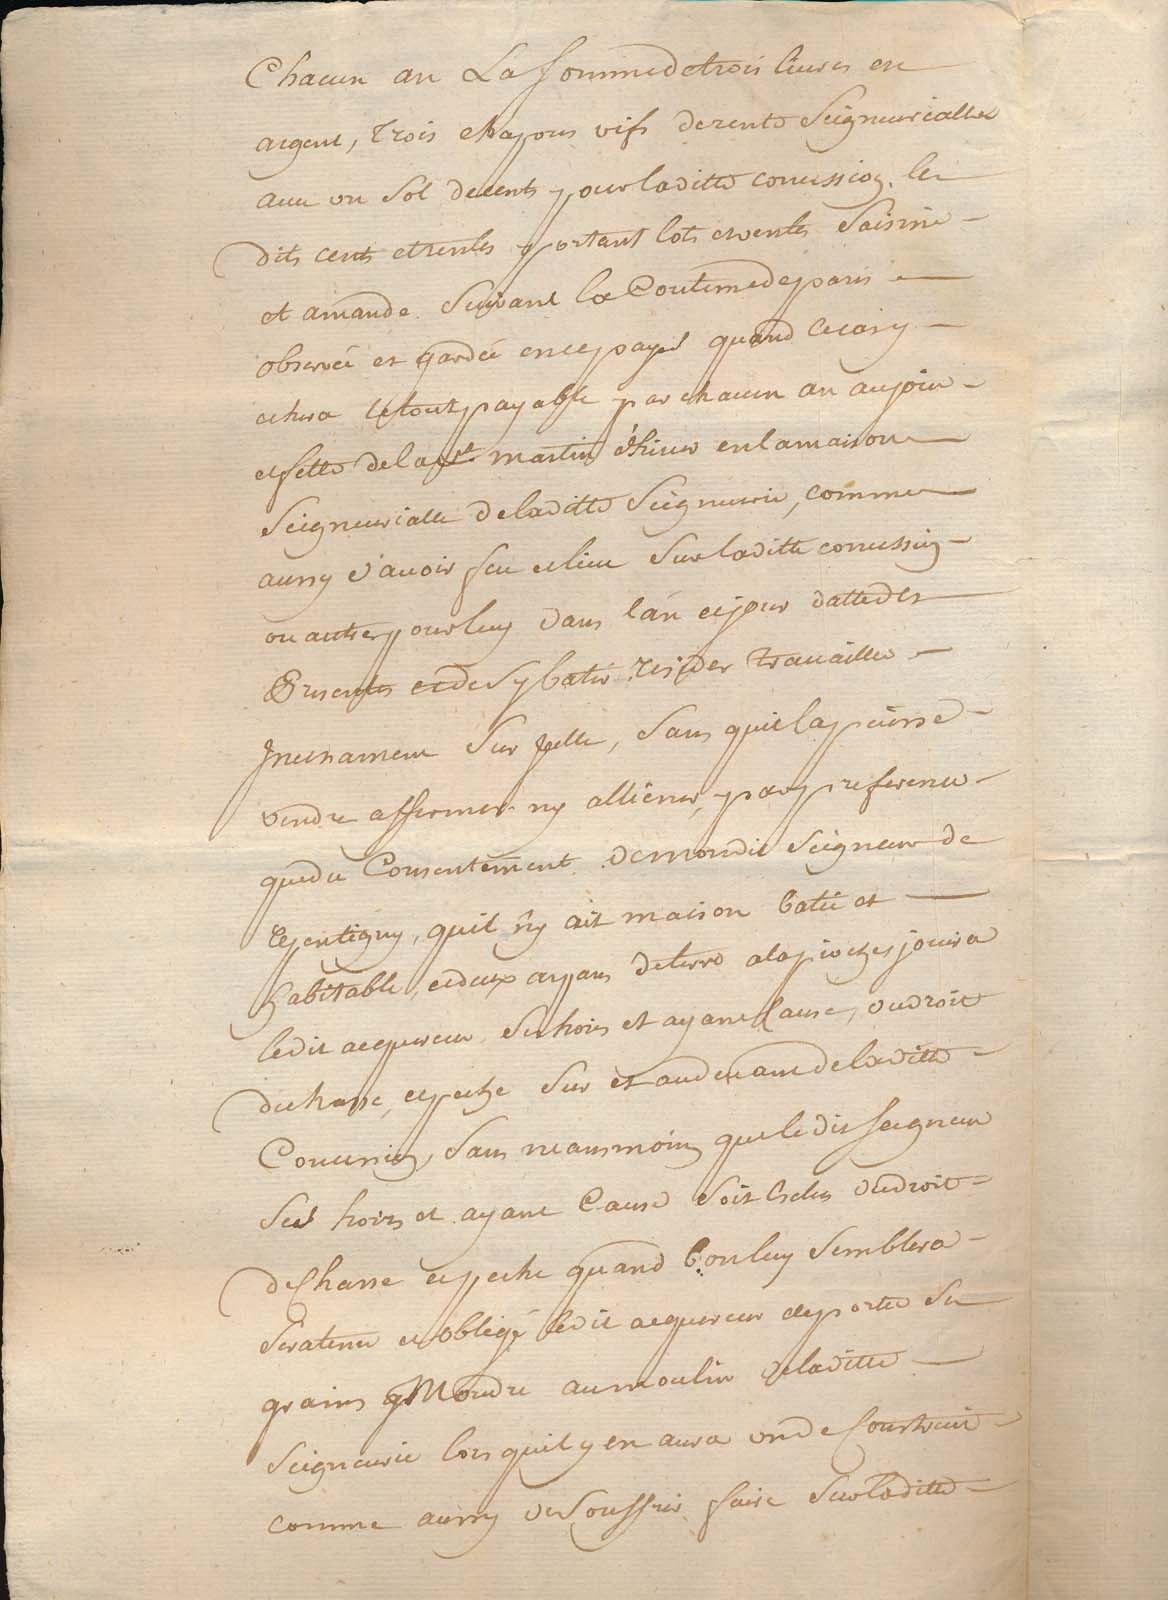 Chacun an La somme de trois livres en
argent, trois chapons vifs de rente Seigneurialle
avec un Sol de cents pour laditte concession, les
dits cents et rentes portant lots et ventes Saisine
et amande Suivant la Coutume de paris
observée et gardée en ce payis quand le cas y
echera le tout payable par chacun an au jour
et fette de la st martin d'hiver en la maison
Seigneurialle de laditte Seigneurie, comme
aussy d'avoir feu et lieu Sur laditte concession
ou autre pour luy dans l'an et jour datte des
Presentes et de s'y batir resider travailler
Incessament Sur jcelle, Sans qu'il la puisse
vendre affermer ny alliener, par preference
que du Consentement de mondit Seigneur de
repentigny, qu'il n'y ait maison batie et
habitable, et deux arpans de terre a la pioche jouira
ledit acquereur, Ses hoirs et ayant Cause, du droit
de chasse, et peche Sur et au devant de laditte
Concession, Sans neansmoins que le dit Seigneur
Ses hoirs et ayant Cause Soit Exclus du droit
de Chasse et peche quand bon luy Semblera
Sera tenu et obligé ledit acquereur de porter Ses
grains Moudre au moulin de laditte
Seigneurie lors quil y en aura un de Construit
comme aussy de Souffrir faire Sur laditte